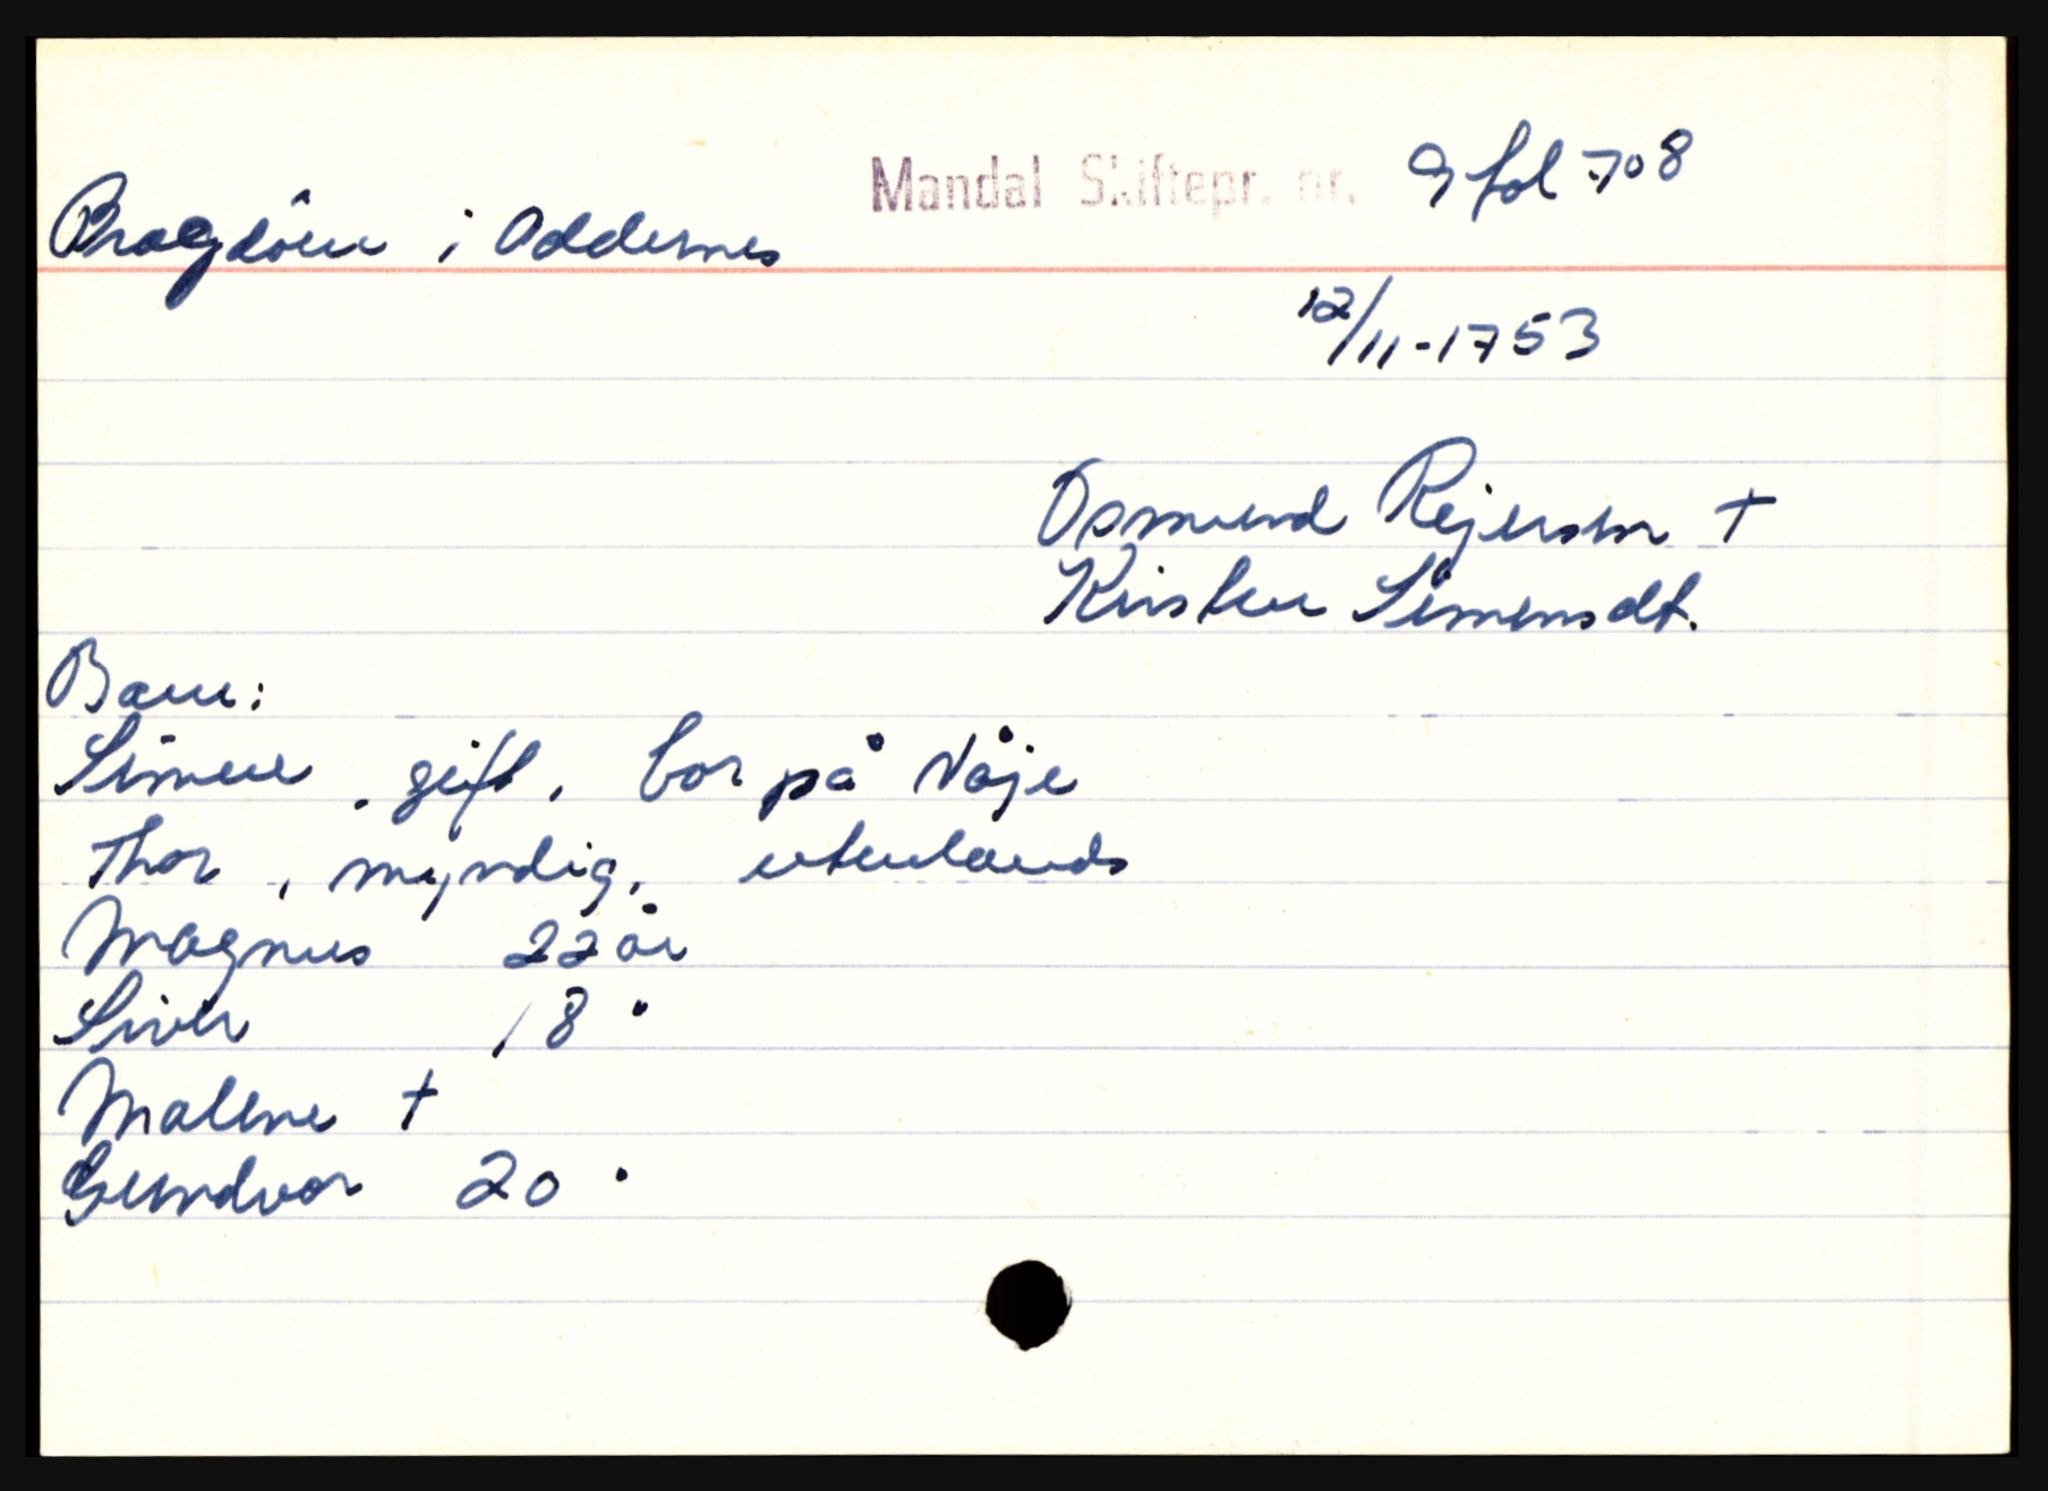 Mandal Skiftepr. nr. 9 fol 708
Bragdöen i Oddernes
12/11-1753
Osmund Rejersen +
Kirsten Simensdt.
Barn:
Simen, gift, bor på Våje
Thor, myndig, utenlands
Magnus 22 år
Siver 18 "
Malene +
Gundvor 20 "